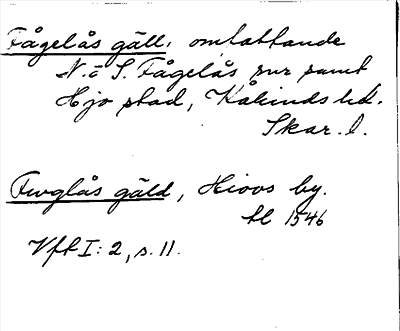 Fågelås gäll, omfattande
N. o S. Fågelås snr samt
Hjo stad, Kåkinds hd.
Skar. l.
Fwglås gäld, Hioos by.
tl 1546
Vft I: 2, s. 11.